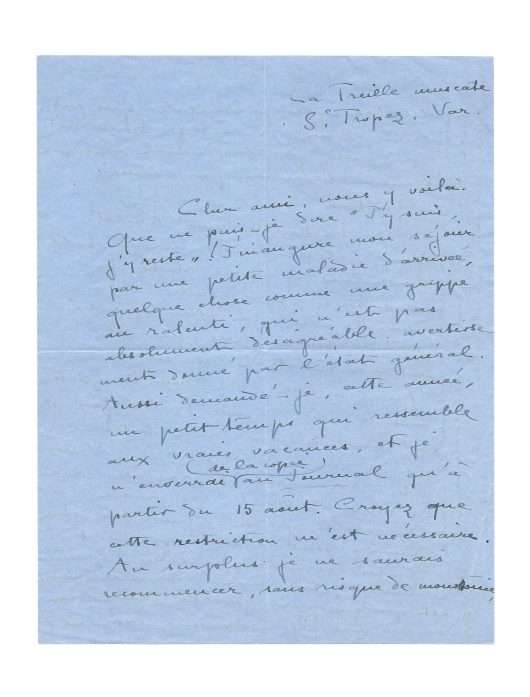 La Treille muscate
St Tropez. Var.
Cher ami, nous y voilà.
Que ne puis-je dire "J'y suis,
j'y reste"! J'inaugure mon séjour
par une petite maladie d'arrivée,
quelque chose comme une grippe
au ralenti, qui n'est pas
absolument désagréable. avertisse
ment donné par l'état général.
Aussi demandé-je, cette année,
un petit temps qui ressemble
aux vraies vacances, et je
(de la copie)
n'enverrai au Journal qu'à
partir du 15 août. Croyez que
cette restriction m'est nécessaire.
Au surplus je ne saurais
recommencer, sans risque de monotonie,